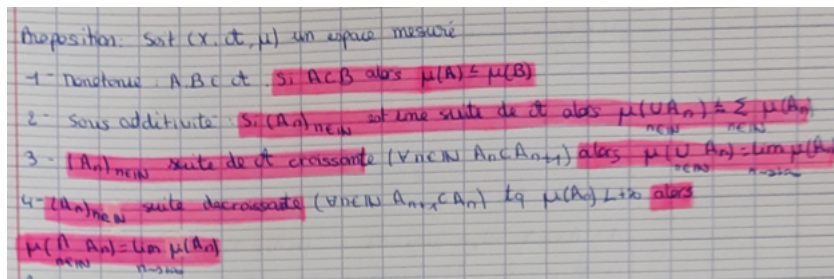 Proposition: Soit (X, 𝒜, μ) un espace mesuré
1- monotonie : A, B ∈ 𝒜 . Si A⊂B alors μ(A) ≤ μ(B)
2- sous additivité : Si (An)n∈ℕ est une suite de 𝒜 alors μ(∪An) ≤ Σ μ(An)
n∈ℕ n∈ℕ
3- (An)n∈ℕ suite de 𝒜 croissante (∀n∈ℕ An⊂An+1) alors μ(∪ An) = lim μ(A
n∈ℕ n→+∞
4- (An)n∈ℕ suite decroissante (∀n∈ℕ An+1⊂An) tq μ(A0) < +∞ alors
μ(∩ An) = lim μ(An)
n∈ℕ n→+∞